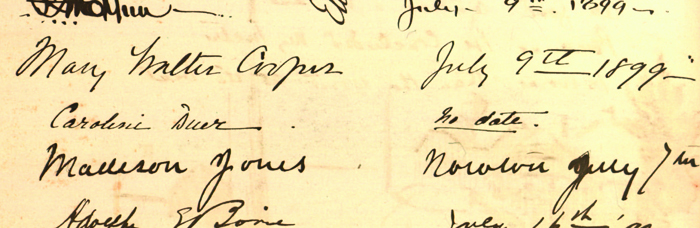 July 9th 1899
Mary Walter Cooper July 9th 1899
Caroline Duer no date.
Madison Jones July 7th
Adolph E Borie July 16th